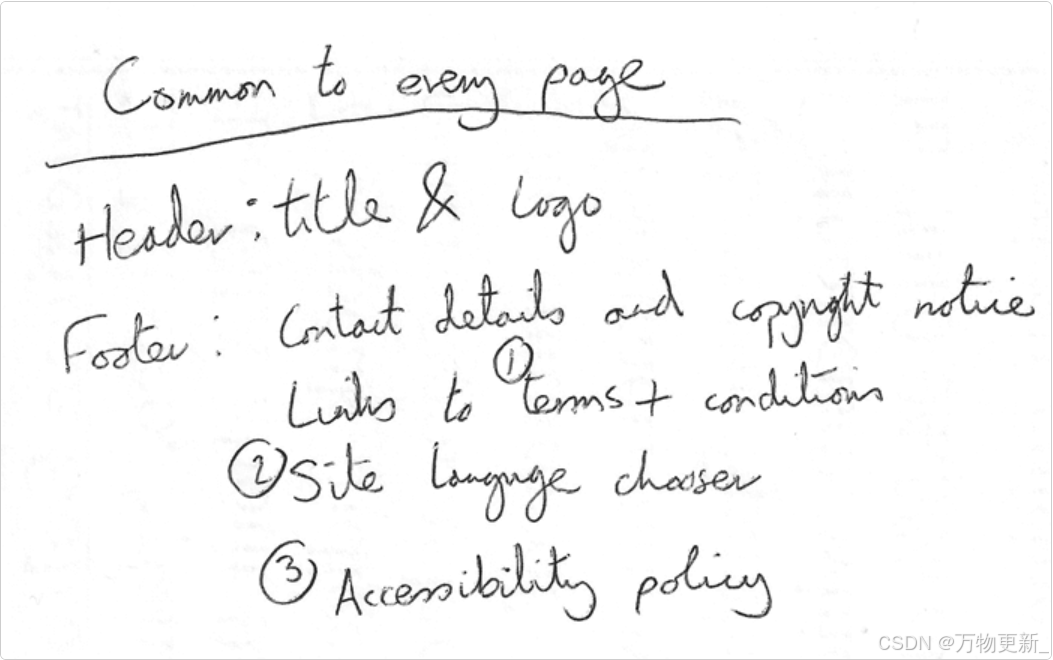 Common to every page
Header: title & logo
Footer: Contact details and copyright notice
Links to ① terms + conditions
② Site language chooser
③ Accessibility policy
CSDN @万物更新_